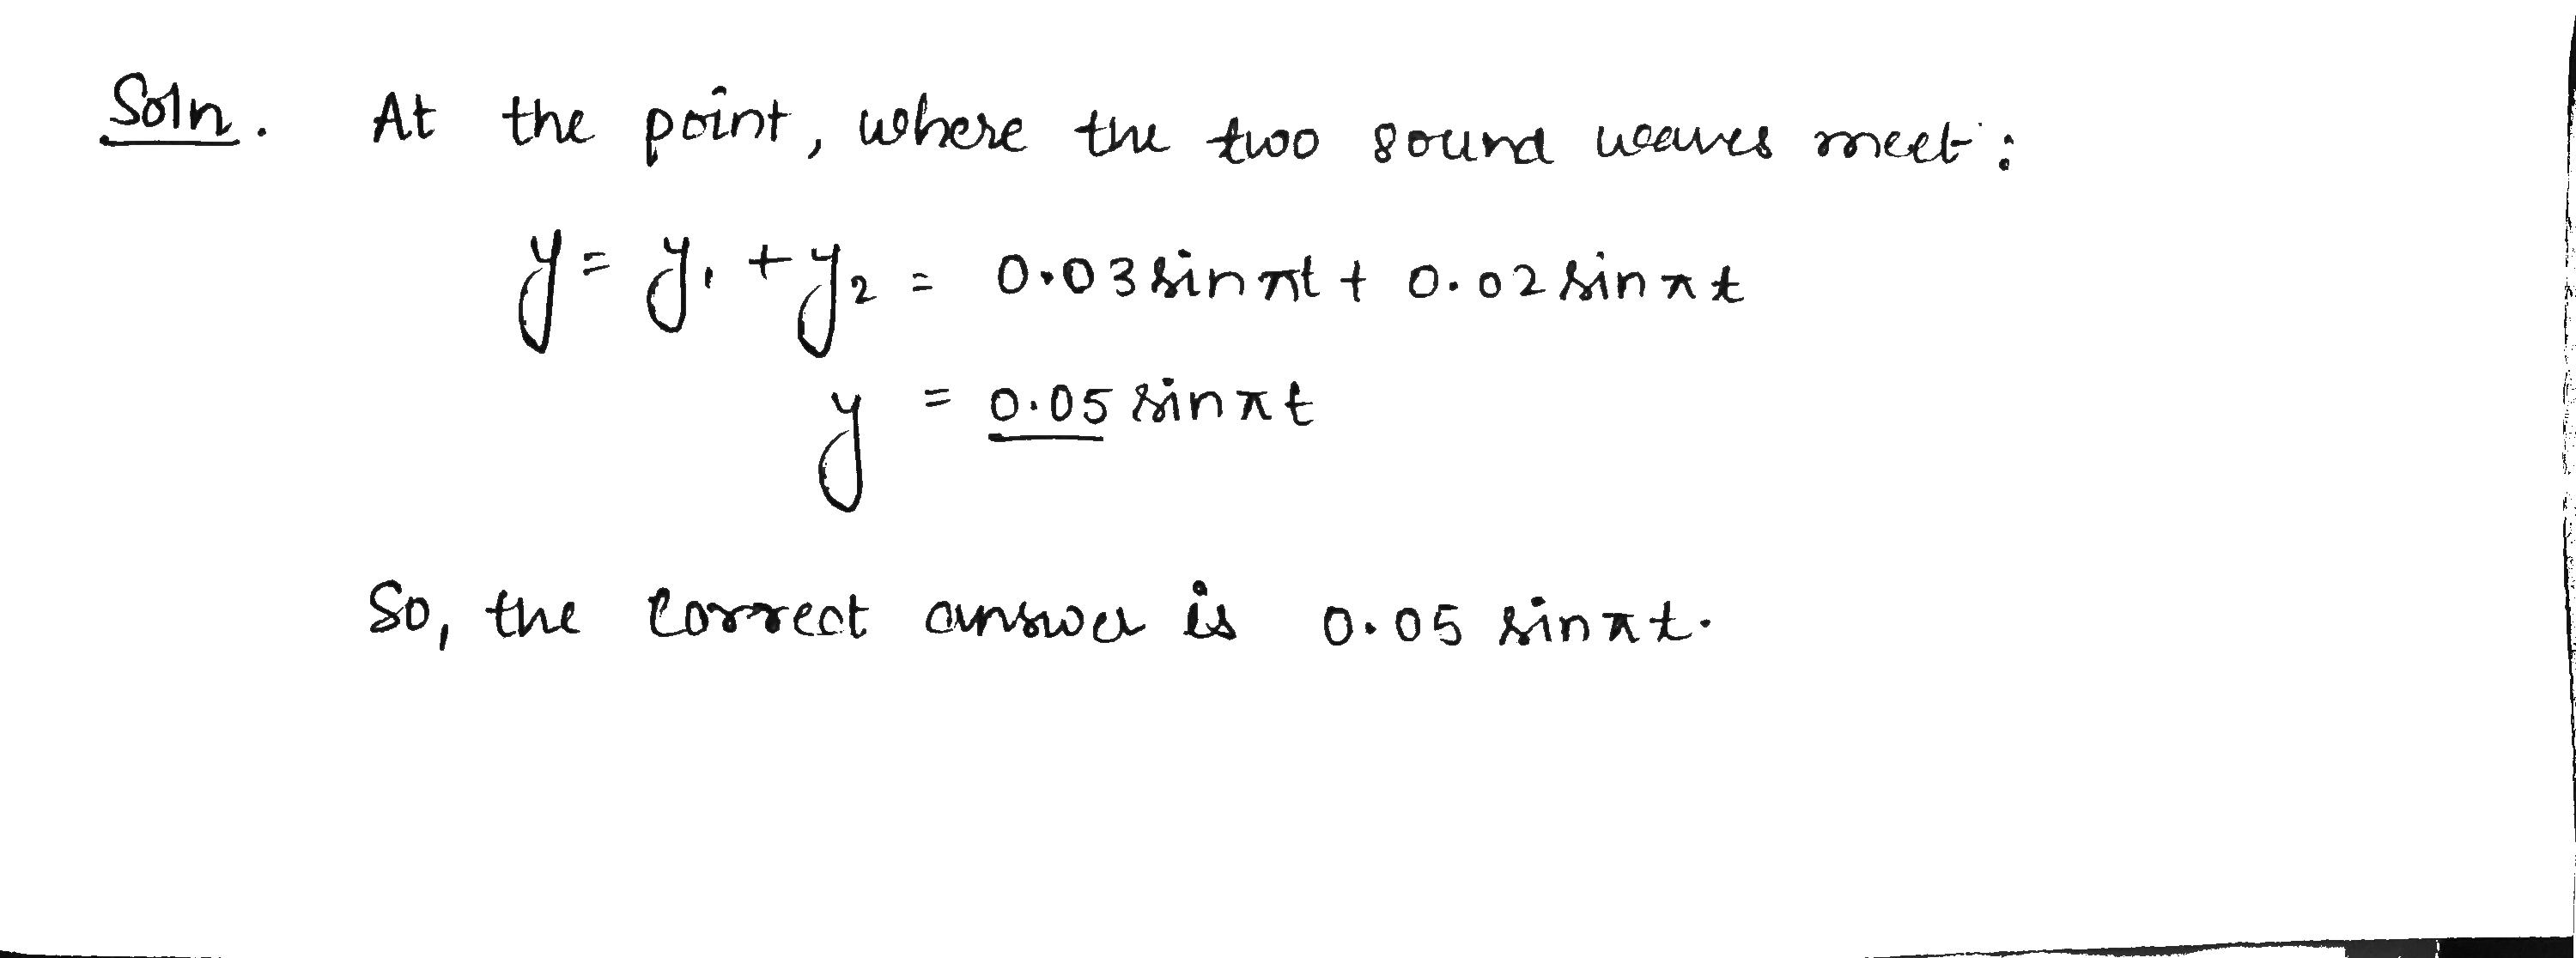 Soln. At the point, where the two sound waves meet:
y = y₁ + y₂ = 0.03 sin πt + 0.02 sin πt
y = 0.05 sin πt
So, the correct answer is 0.05 sin πt.